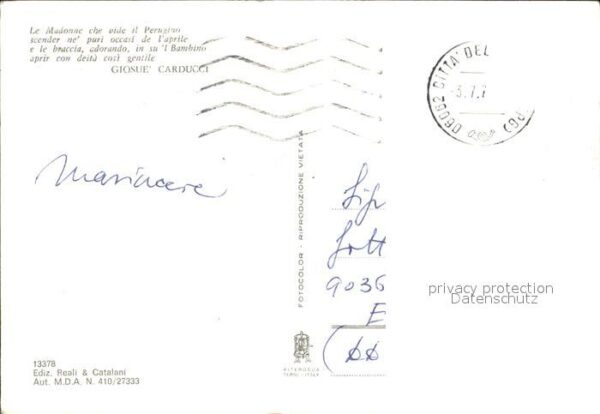 Le Madonne che vide il Perugino
scender ne' puri occasi de l'aprile
e le braccia, adorando, in su 'l Bambino
aprir con deità così gentile
GIOSUE' CARDUCCI
06062 CITTA' DEL
-3.7.7
(PG)
FOTOCOLOR - RIPRODUZIONE VIETATA
9036
E
privacy protection
Datenschutz
13378
Ediz. Reali & Catalani
Aut. M.D.A. N. 410/27333
ALTEROCCA
TERNI - ITALY